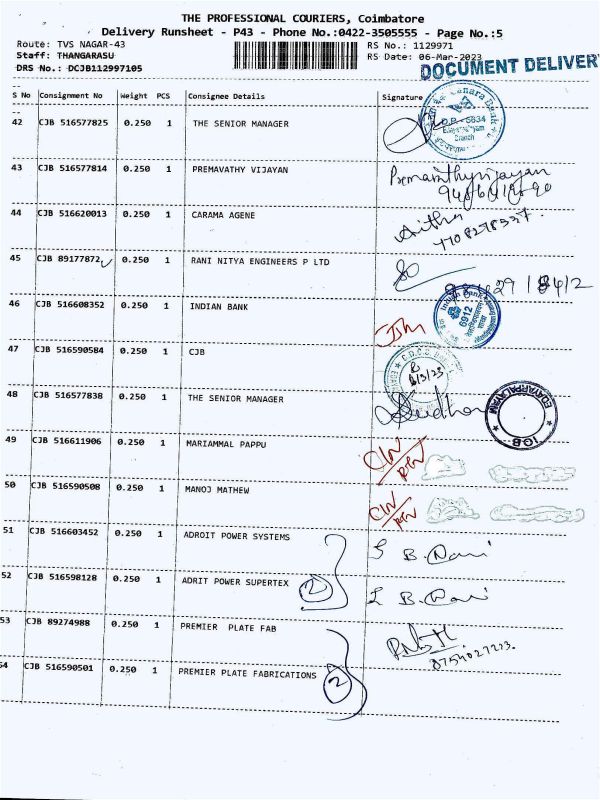 THE PROFESSIONAL COURIERS, Coimbatore
Delivery Runsheet - P43 - Phone No.:0422-3505555 - Page No.:5
Route: TVS NAGAR-43 RS No.: 1129971
Staff: THANGARASU RS Date: 06-Mar-2023
DRS No.: DCJB112997105 DOCUMENT DELIVERY
S No Consignment No Weight PCS Consignee Details Signature
42 CJB 516577825 0.250 1 THE SENIOR MANAGER
Canara Bank
D.P - 5834
Branch
43 CJB 516577814 0.250 1 PREMAVATHY VIJAYAN Premavathyvijayan
44 CJB 516620013 0.250 1 CARAMA AGENE
7708278337.
45 CJB 89177872 0.250 1 RANI NITYA ENGINEERS P LTD
46 CJB 516608352 0.250 1 INDIAN BANK
Indian Bank
6912
47 CJB 516590584 0.250 1 CJB
6/3/23
48 CJB 516577838 0.250 1 THE SENIOR MANAGER
EDAYARPALAYAM
IOB
49 CJB 516611906 0.250 1 MARIAMMAL PAPPU
50 CJB 516590508 0.250 1 MANOJ MATHEW
51 CJB 516603452 0.250 1 ADROIT POWER SYSTEMS
52 CJB 516598128 0.250 1 ADRIT POWER SUPERTEX 2
53 CJB 89274988 0.250 1 PREMIER PLATE FAB
54 CJB 516590501 0.250 1 PREMIER PLATE FABRICATIONS 2